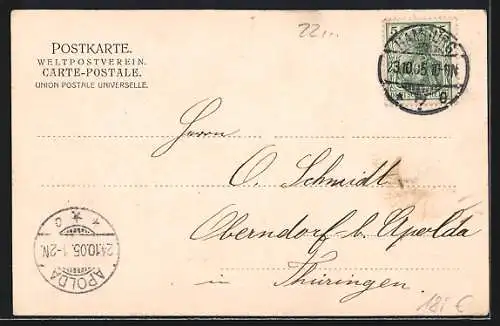 22...
POSTKARTE.
WELTPOSTVEREIN.
CARTE-POSTALE.
UNION POSTALE UNIVERSELLE.
HAMBURG
23.10.05. 10-11N
* 9
Herrn
O. Schmidt
Oberndorf b. Apolda
in Thüringen.
24.10.05. 1-2N.
APOLDA
18,- €